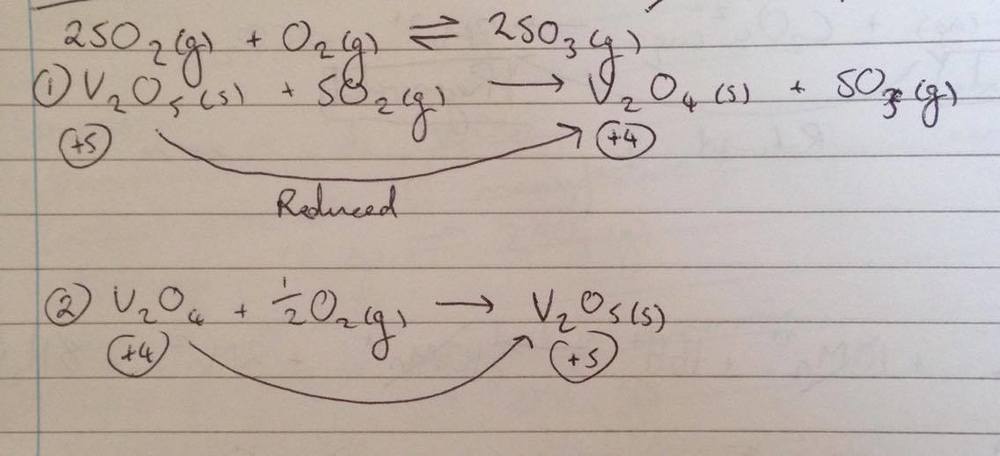 2SO₂(g) + O₂(g) ⇌ 2SO₃(g)
① V₂O₅(s) + SO₂(g) → V₂O₄(s) + SO₃(g)
+5 +4
Reduced
② V₂O₄ + ½O₂(g) → V₂O₅(s)
+4 +5